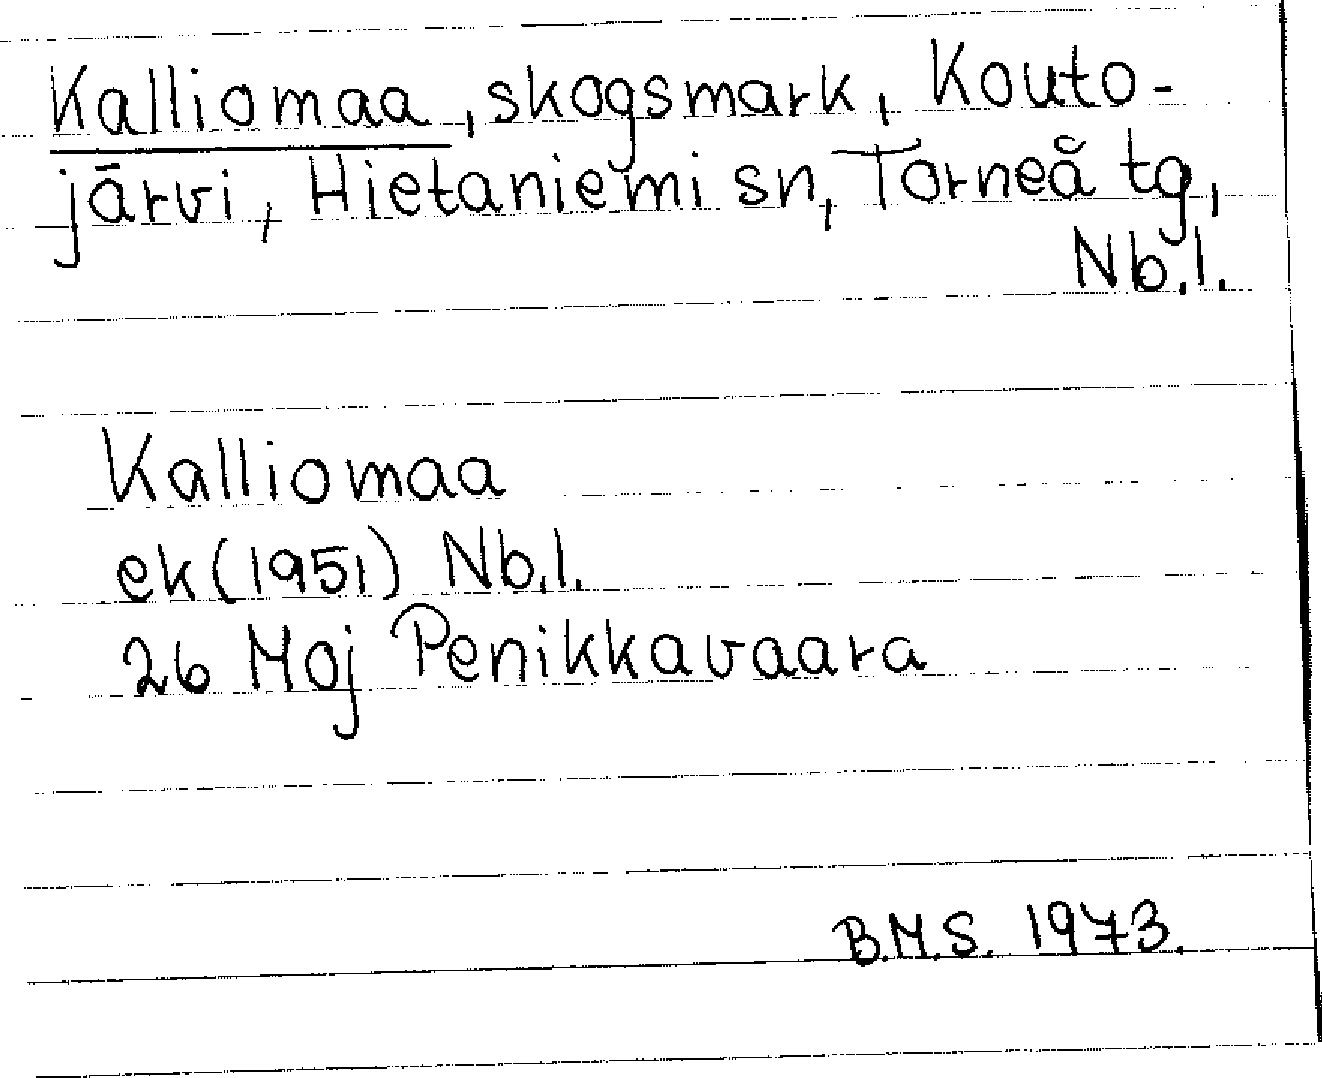 Kalliomaa, skogsmark, Kouto-
järvi, Hietaniemi sn, Torneå tg,
Nb.l.
Kalliomaa
ek (1951) Nb.l.
26 Moj Penikkavaara
B.M.S. 1973.